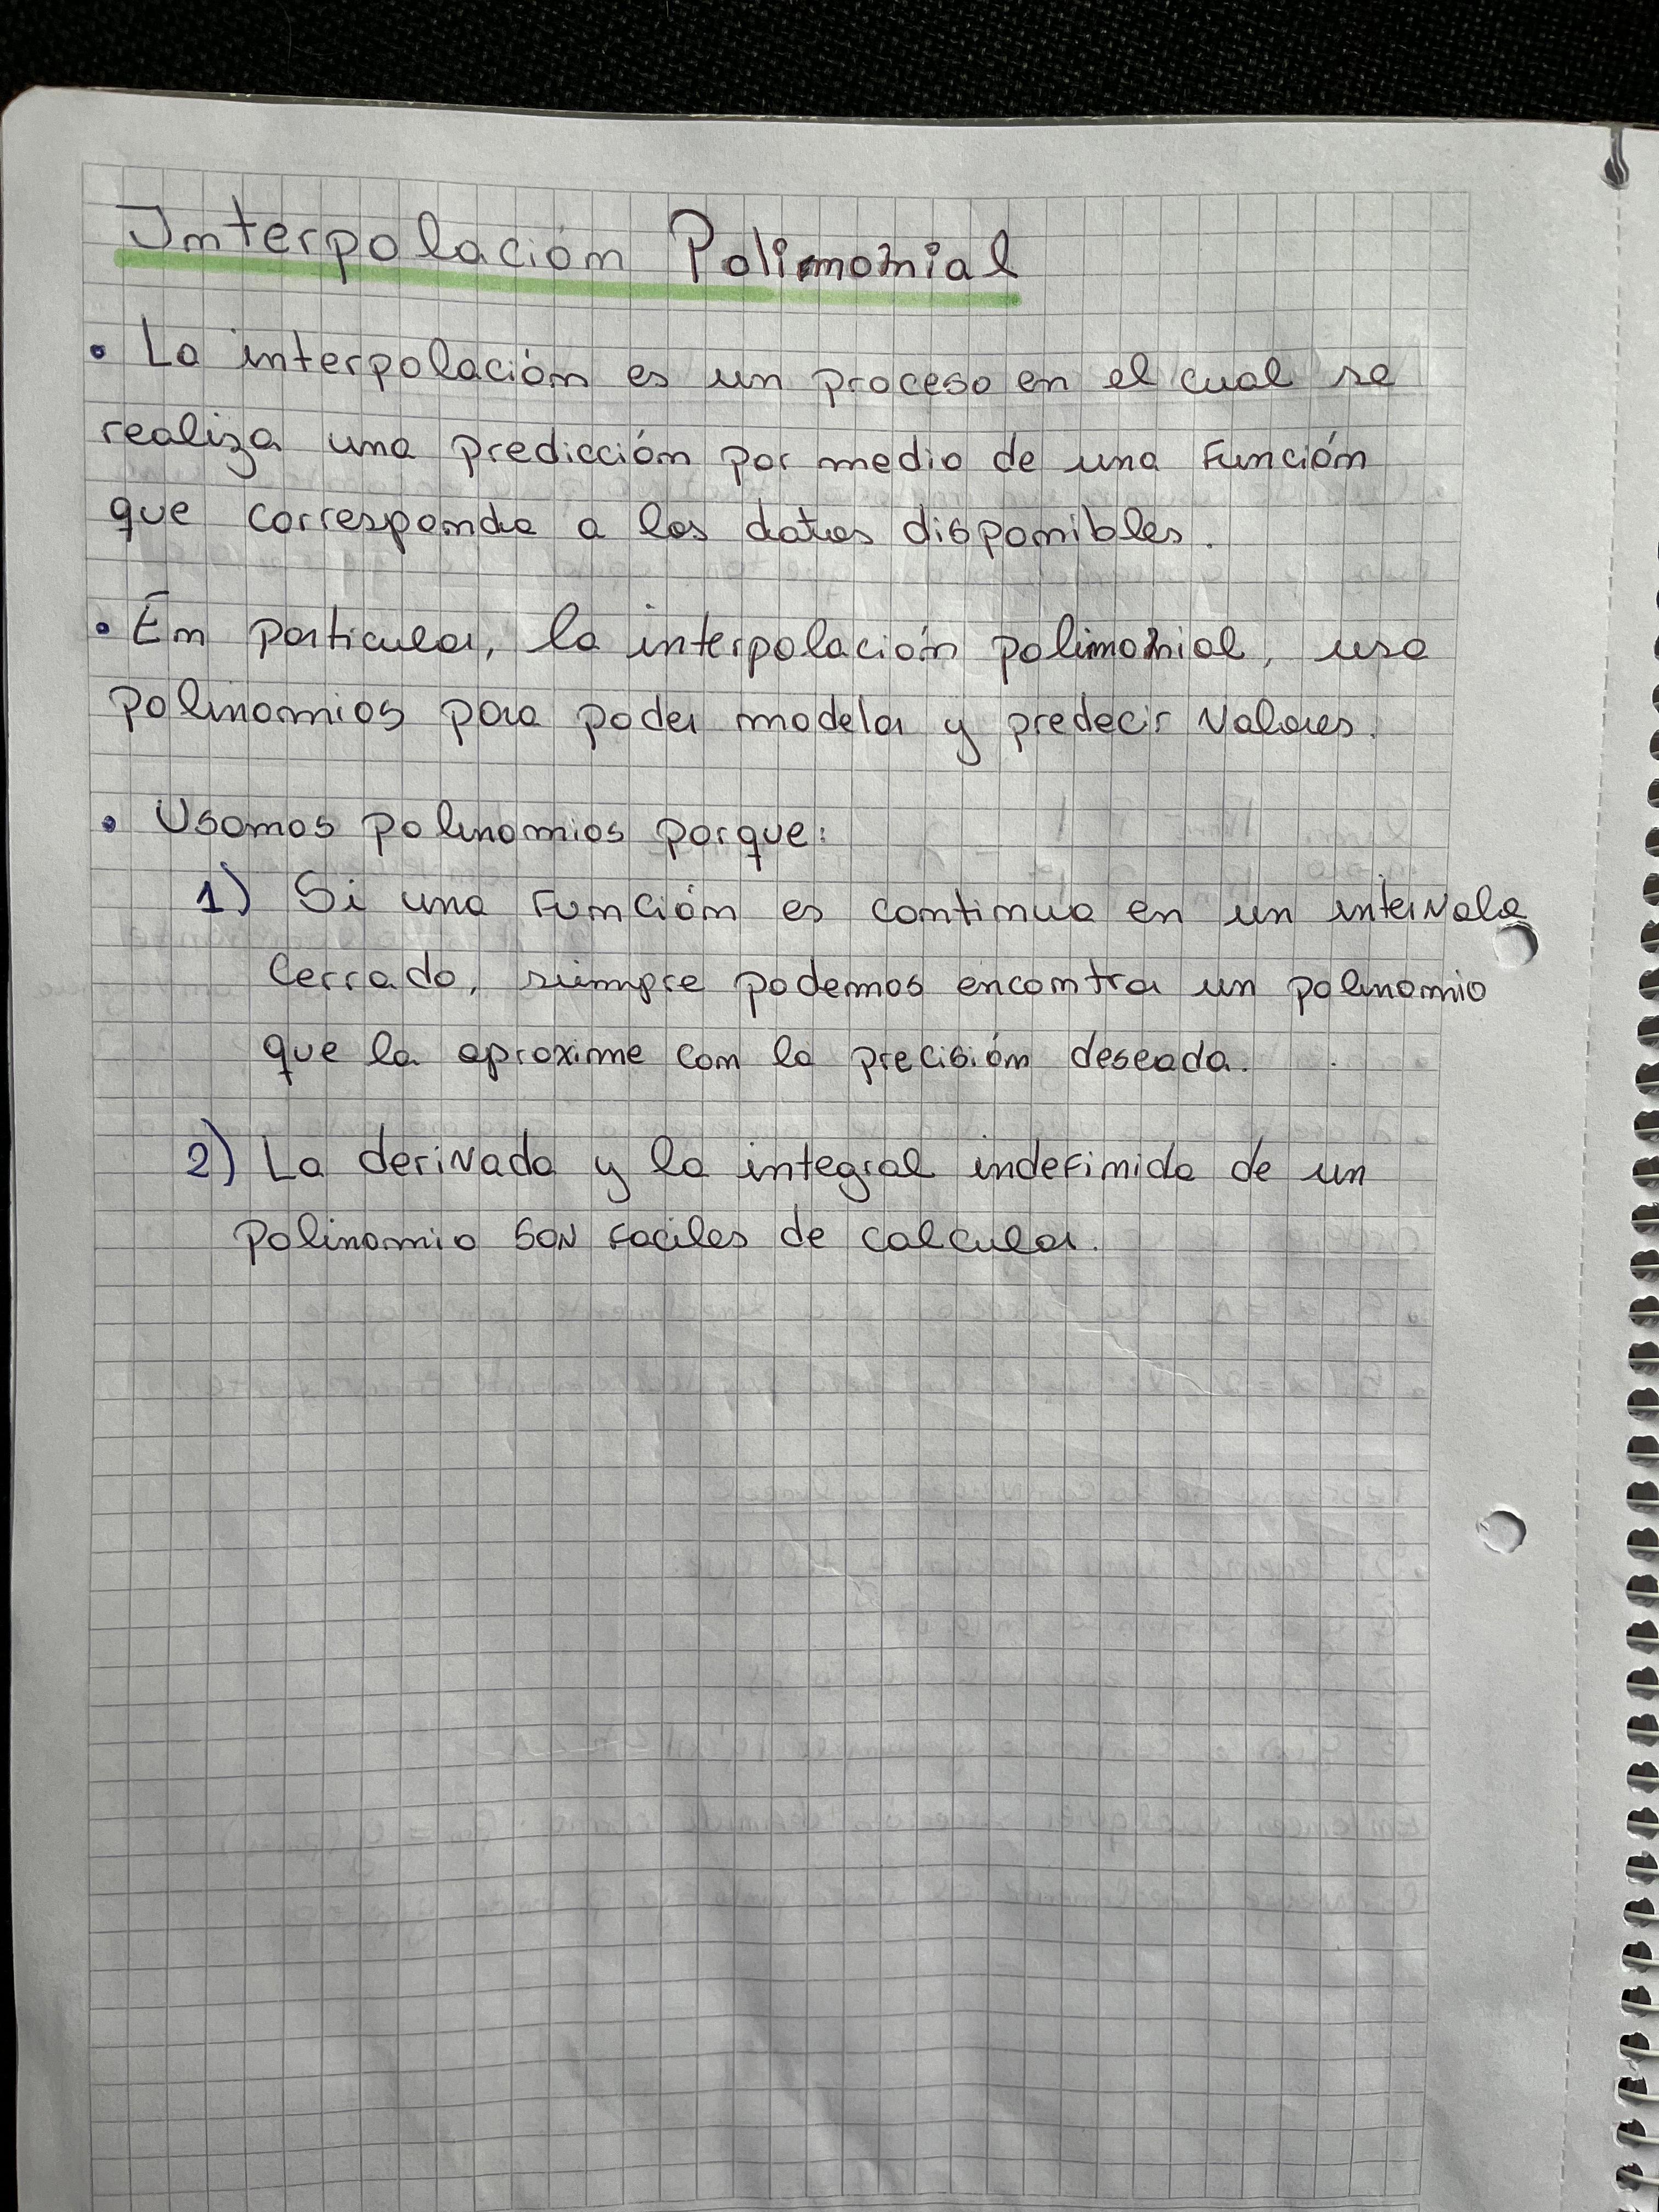 Interpolación Polinomial
• La interpolación es un proceso en el cual se
realiza una predicción por medio de una función
que corresponde a los datos disponibles.
• En particular, la interpolación polinomial, usa
polinomios para poder modelar y predecir valores.
• Usamos polinomios porque:
1) Si una función es continua en un intervalo
cerrado, siempre podemos encontrar un polinomio
que la aproxime con la precisión deseada.
2) La derivada y la integral indefinida de un
polinomio son faciles de calcular.